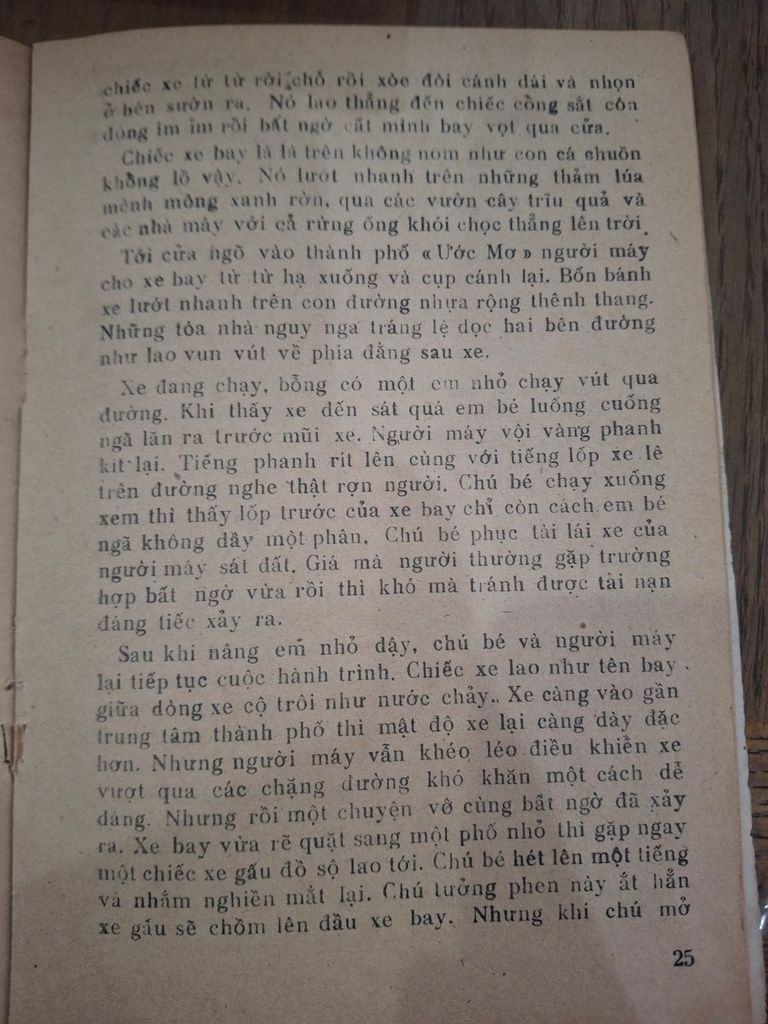 chiếc xe từ từ rời chỗ rồi xòe đôi cánh dài và nhọn
ở bên sườn ra. Nó lao thẳng đến chiếc cổng sắt còn
đóng im ỉm rồi bất ngờ cất mình bay vọt qua cửa.
Chiếc xe bay là là trên không nom như con cá chuồn
khổng lồ vậy. Nó lướt nhanh trên những thảm lúa
mênh mông xanh rờn, qua các vườn cây trĩu quả và
các nhà máy với cả rừng ống khói chọc thẳng lên trời.
Tới cửa ngõ vào thành phố «Ước Mơ» người máy
cho xe bay từ từ hạ xuống và cụp cánh lại. Bốn bánh
xe lướt nhanh trên con đường nhựa rộng thênh thang.
Những tòa nhà nguy nga tráng lệ dọc hai bên đường
như lao vun vút về phía đằng sau xe.
Xe đang chạy, bỗng có một em nhỏ chạy vút qua
đường. Khi thấy xe đến sát quá em bé luống cuống
ngã lăn ra trước mũi xe. Người máy vội vàng phanh
kít lại. Tiếng phanh rít lên cùng với tiếng lốp xe lê
trên đường nghe thật rợn người. Chú bé chạy xuống
xem thì thấy lốp trước của xe bay chỉ còn cách em bé
ngã không đầy một phân. Chú bé phục tài lái xe của
người máy sát đất. Giá mà người thường gặp trường
hợp bất ngờ vừa rồi thì khó mà tránh được tài nạn
đáng tiếc xảy ra.
Sau khi nâng em nhỏ dậy, chú bé và người máy
lại tiếp tục cuộc hành trình. Chiếc xe lao như tên bay
giữa dòng xe cộ trôi như nước chảy.. Xe càng vào gần
trung tâm thành phố thì mật độ xe lại càng dày đặc
hơn. Nhưng người máy vẫn khéo léo điều khiển xe
vượt qua các chặng đường khó khăn một cách dễ
dàng. Nhưng rồi một chuyện vô cùng bất ngờ đã xảy
ra. Xe bay vừa rẽ quặt sang một phố nhỏ thì gặp ngay
một chiếc xe gấu đồ sộ lao tới. Chú bé hét lên một tiếng
và nhắm nghiền mắt lại. Chú tưởng phen này ắt hẳn
xe gấu sẽ chồm lên đầu xe bay. Nhưng khi chú mở
25